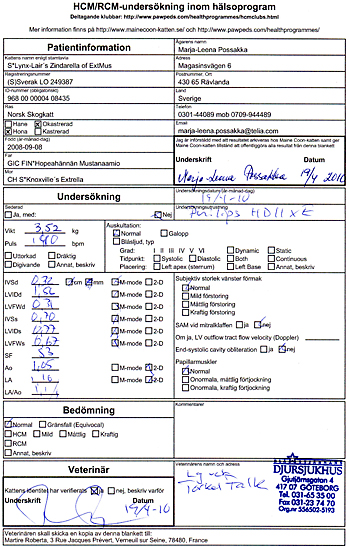 HCM/RCM-undersökning inom hälsoprogram
Deltagande klubbar: http://www.pawpeds.com/healthprogrammes/hcmclubs.html
Mer information finns på http://www.mainecoon-katten.se/ och http://www.pawpeds.com/healthprogrammes/
Patientinformation
Kattens namn enligt stamtavla
S*Lynx-Lair's Zindarella of ExtMus
Registreringsnummer
(S)Sverak LO 249387
ID-nummer (obligatoriskt)
968 00 00004 08435
Ras
Norsk Skogkatt
Hane Okastrerad
Hona Kastrerad
Född (år-månad-dag)
2008-09-08
Far
GIC FIN*Hopeahännän Mustanaamio
Mor
CH S*Knoxville´s Extrella
Ägarens namn
Marja-Leena Possakka
Adress
Magasinsvägen 6
Postnummer, Ort
430 65 Rävlanda
Land
Sverige
Telefon
0301-44089 mob 0709-944989
Email
marja-leena.possakka@telia.com
Underskrift Datum
Marja-Leena Possakka 19/4 2010
Undersökning
Sederad
Ja, med: Nej
Undersökningsdatum (år-månad-dag)
19/4-10
Undersökningsutrustning
Philips HD11XE
Vikt 3,52 kg
Puls 190 bpm
Uttorkad Dräktig
Digivande Annat, beskriv
Auskultation:
Normal Galopp
Blåsljud, typ
Grad: I II III IV V VI Dynamic Static
Tidpunkt: Systolic Diastolic Both Continuous
Placering: Left apex (sternum) Left Base Annat, beskriv
IVSd 0,32 cm mm M-mode 2-D
LVIDd 1,52
LVFWd 0,31
IVSs M-mode 2-D
LVIDs M-mode 2-D
LVFWs 0,67 M-mode 2-D
SF 53
Ao 1,05 M-mode 2-D
LA M-mode 2-D
LA/Ao
Subjektiv storlek vänster förmak:
Normal
Mild förstoring
Måttlig förstoring
Kraftig förstoring
SAM vid mitralklaffen ja nej
Om ja, LV outflow tract flow velocity (Doppler)
End-systolic cavity obliteration ja nej
Papillarmuskler
Normal
Onormala, måttlig förtjockning
Onormala, kraftig förtjockning
Bedömning
Normal Gränsfall (Equivocal)
HCM Mild Måttlig Kraftig
RCM
Annat, beskriv
Kommentarer
Veterinär
Kattens identitet har verifierats ja nej, beskriv varför
Underskrift Datum
19/4-10
Veterinärens namn och adress
Torkel Falk
DJURSJUKHUS
Gjutjärnsgatan 4
417 07 GÖTEBORG
Tel. 031-65 35 00
Fax 031-23 74 70
Org.nr 556502-5193
Veterinären skall skicka en kopia av denna blankett till:
Martine Roberta, 3 Rue Jacques Prévert, Verneuil sur Seine, 78480, France